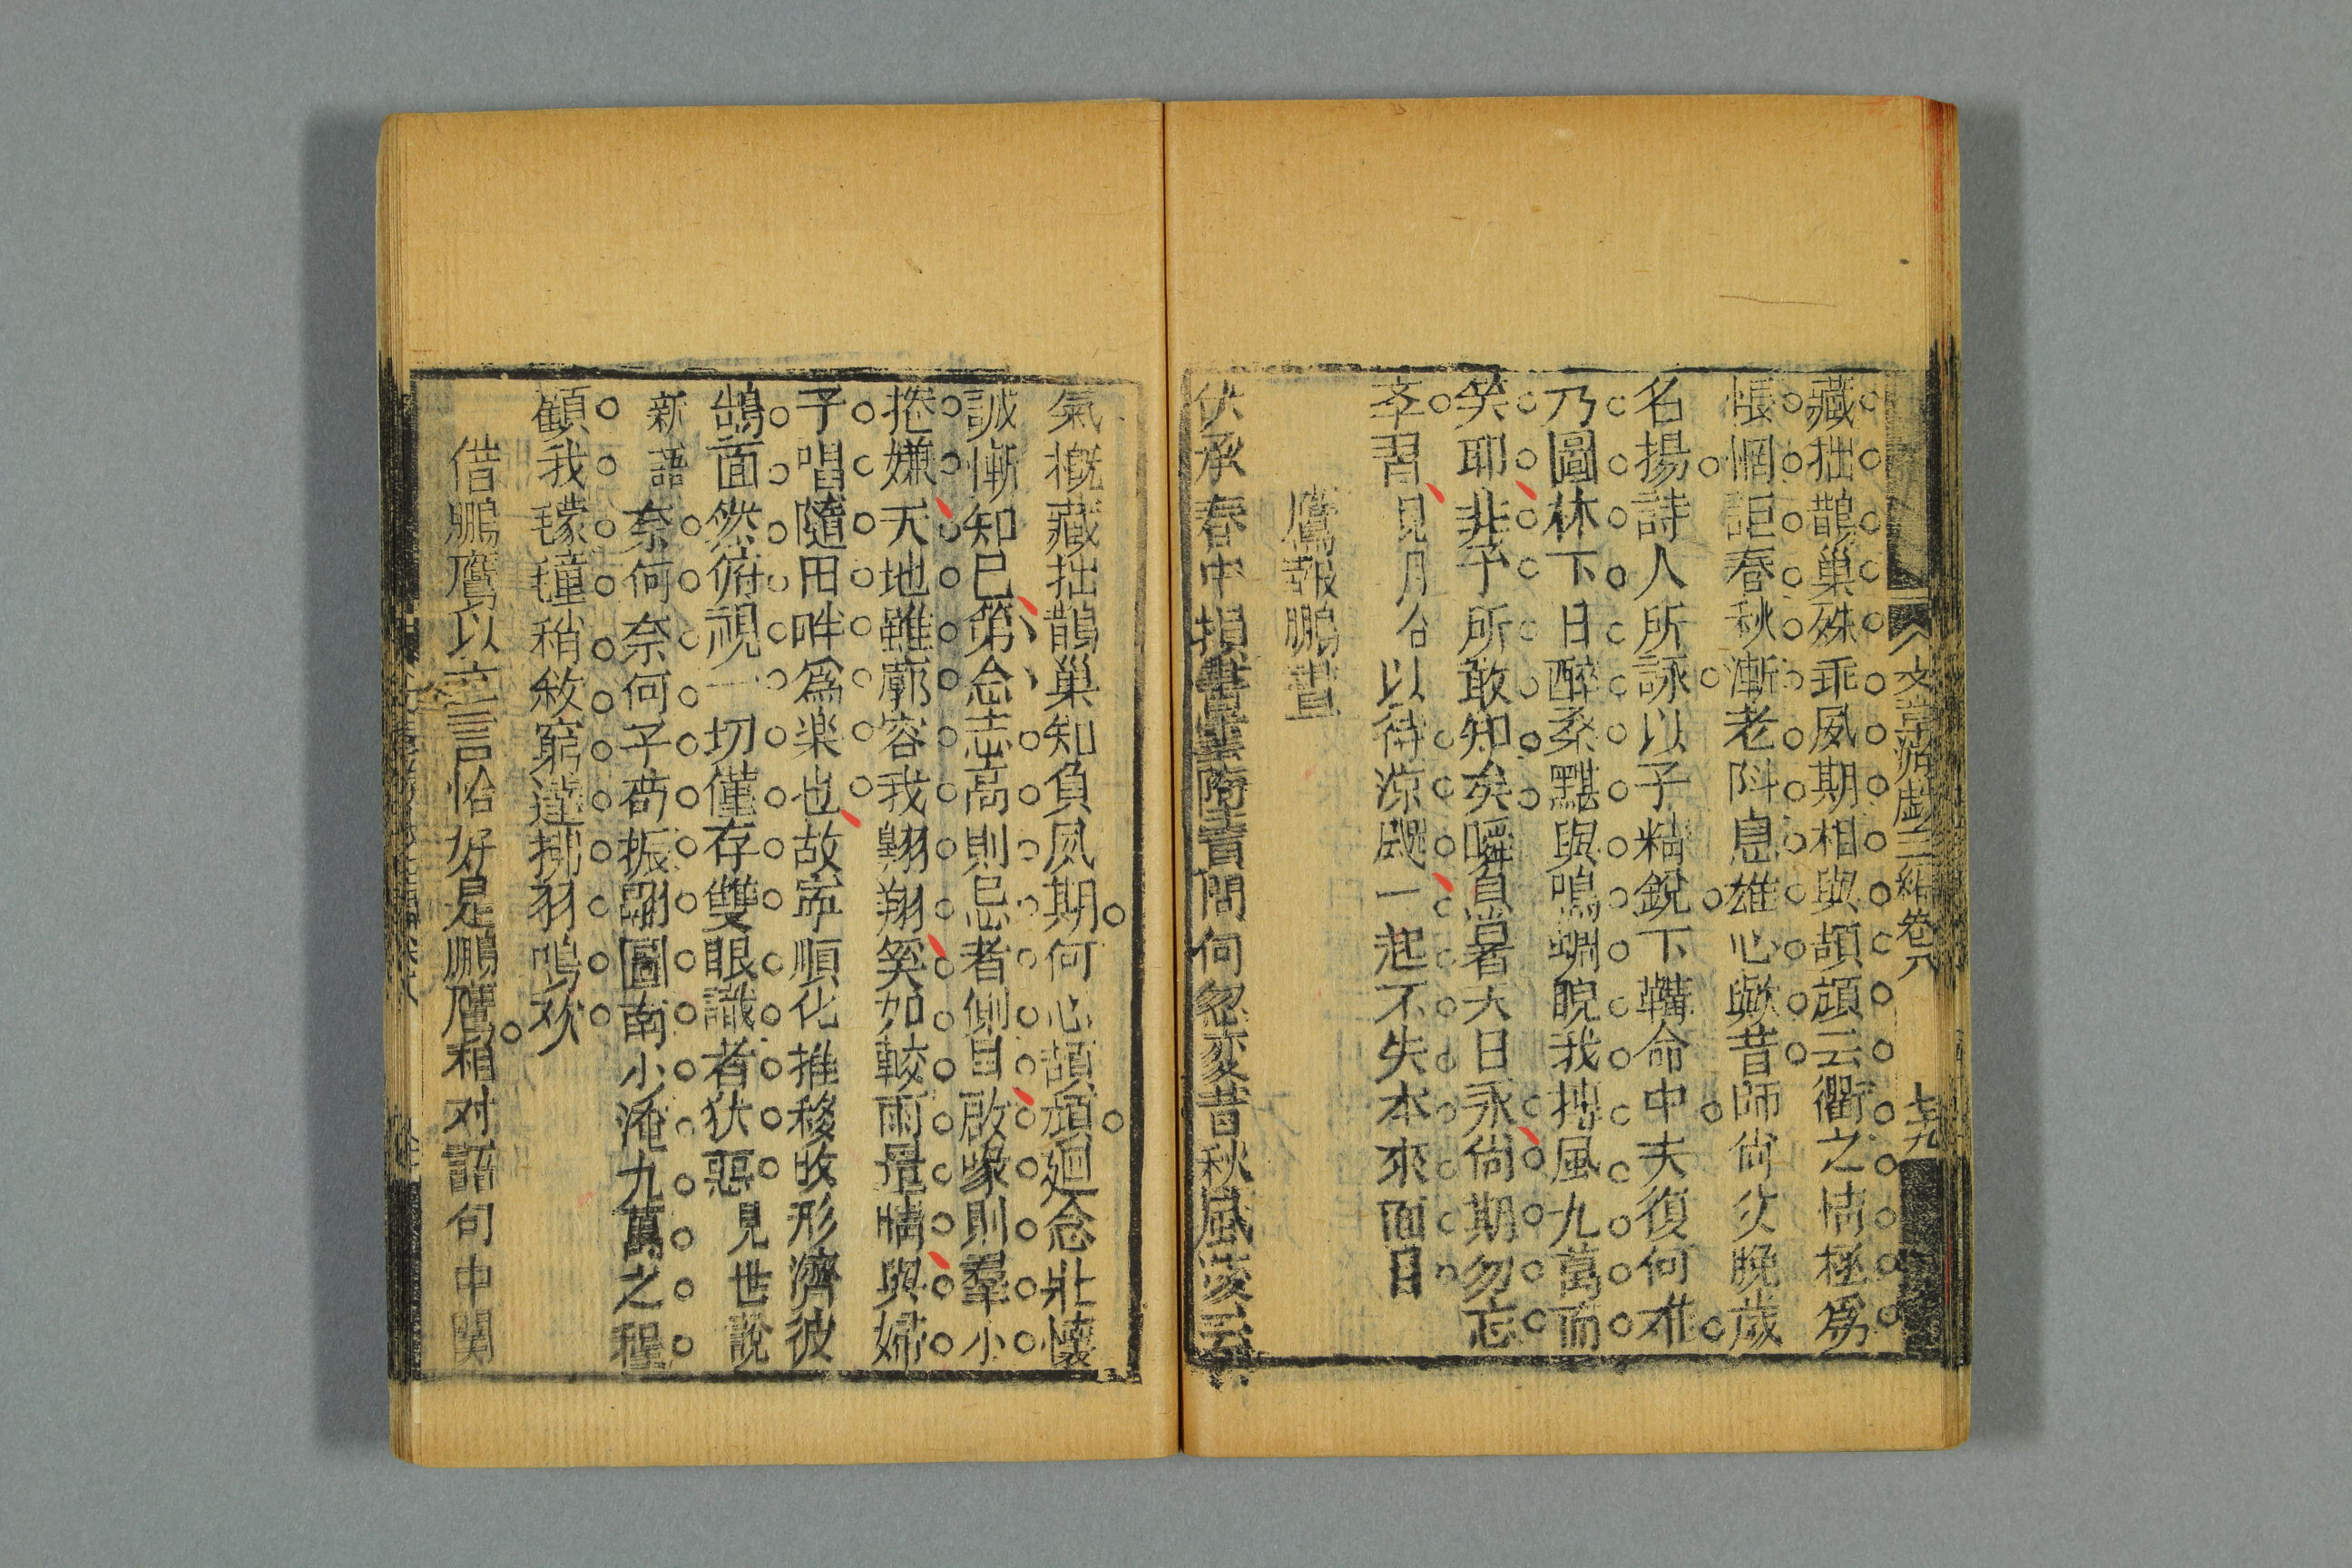 文章游戲三編卷八 七十九
藏拙鵲巢殊乖夙期相與頡頏云衢之情極為
悵惘詎春秋漸老阧息雄心歟昔師尙父晚歲
名揚詩人所詠以子精銳下韝命中夫復何難
乃圖林下日醉桑黮與鳴蜩睨我搶風九萬而
笑耶非予所敢知矣嚼直當著天日永尙期勿忘
李習見月令以待涼颸一起不失本來面目
鷹報鵬書
伏承春中損書問何忽変昔秋風凌云
氣概藏拙鵲巢知負夙期何心頡頏廻念壯懷
誠慚知巳第念志高則忌者側目啟喙則羣小
捲嫌天地雖廓容我翺翔奚如較雨量晴與婦
子唱隨田畔為楽也故寜順化推移收形濟彼
鵠面然俯視一切僅存雙眼識者伏惡見世說
新語奈何奈何子苟振翮圖南小淹九萬之程
顧我氋氃稍敘窮達揶羽鳴欢
借鵬鷹以立言恰好是鵬鷹相对語句中関